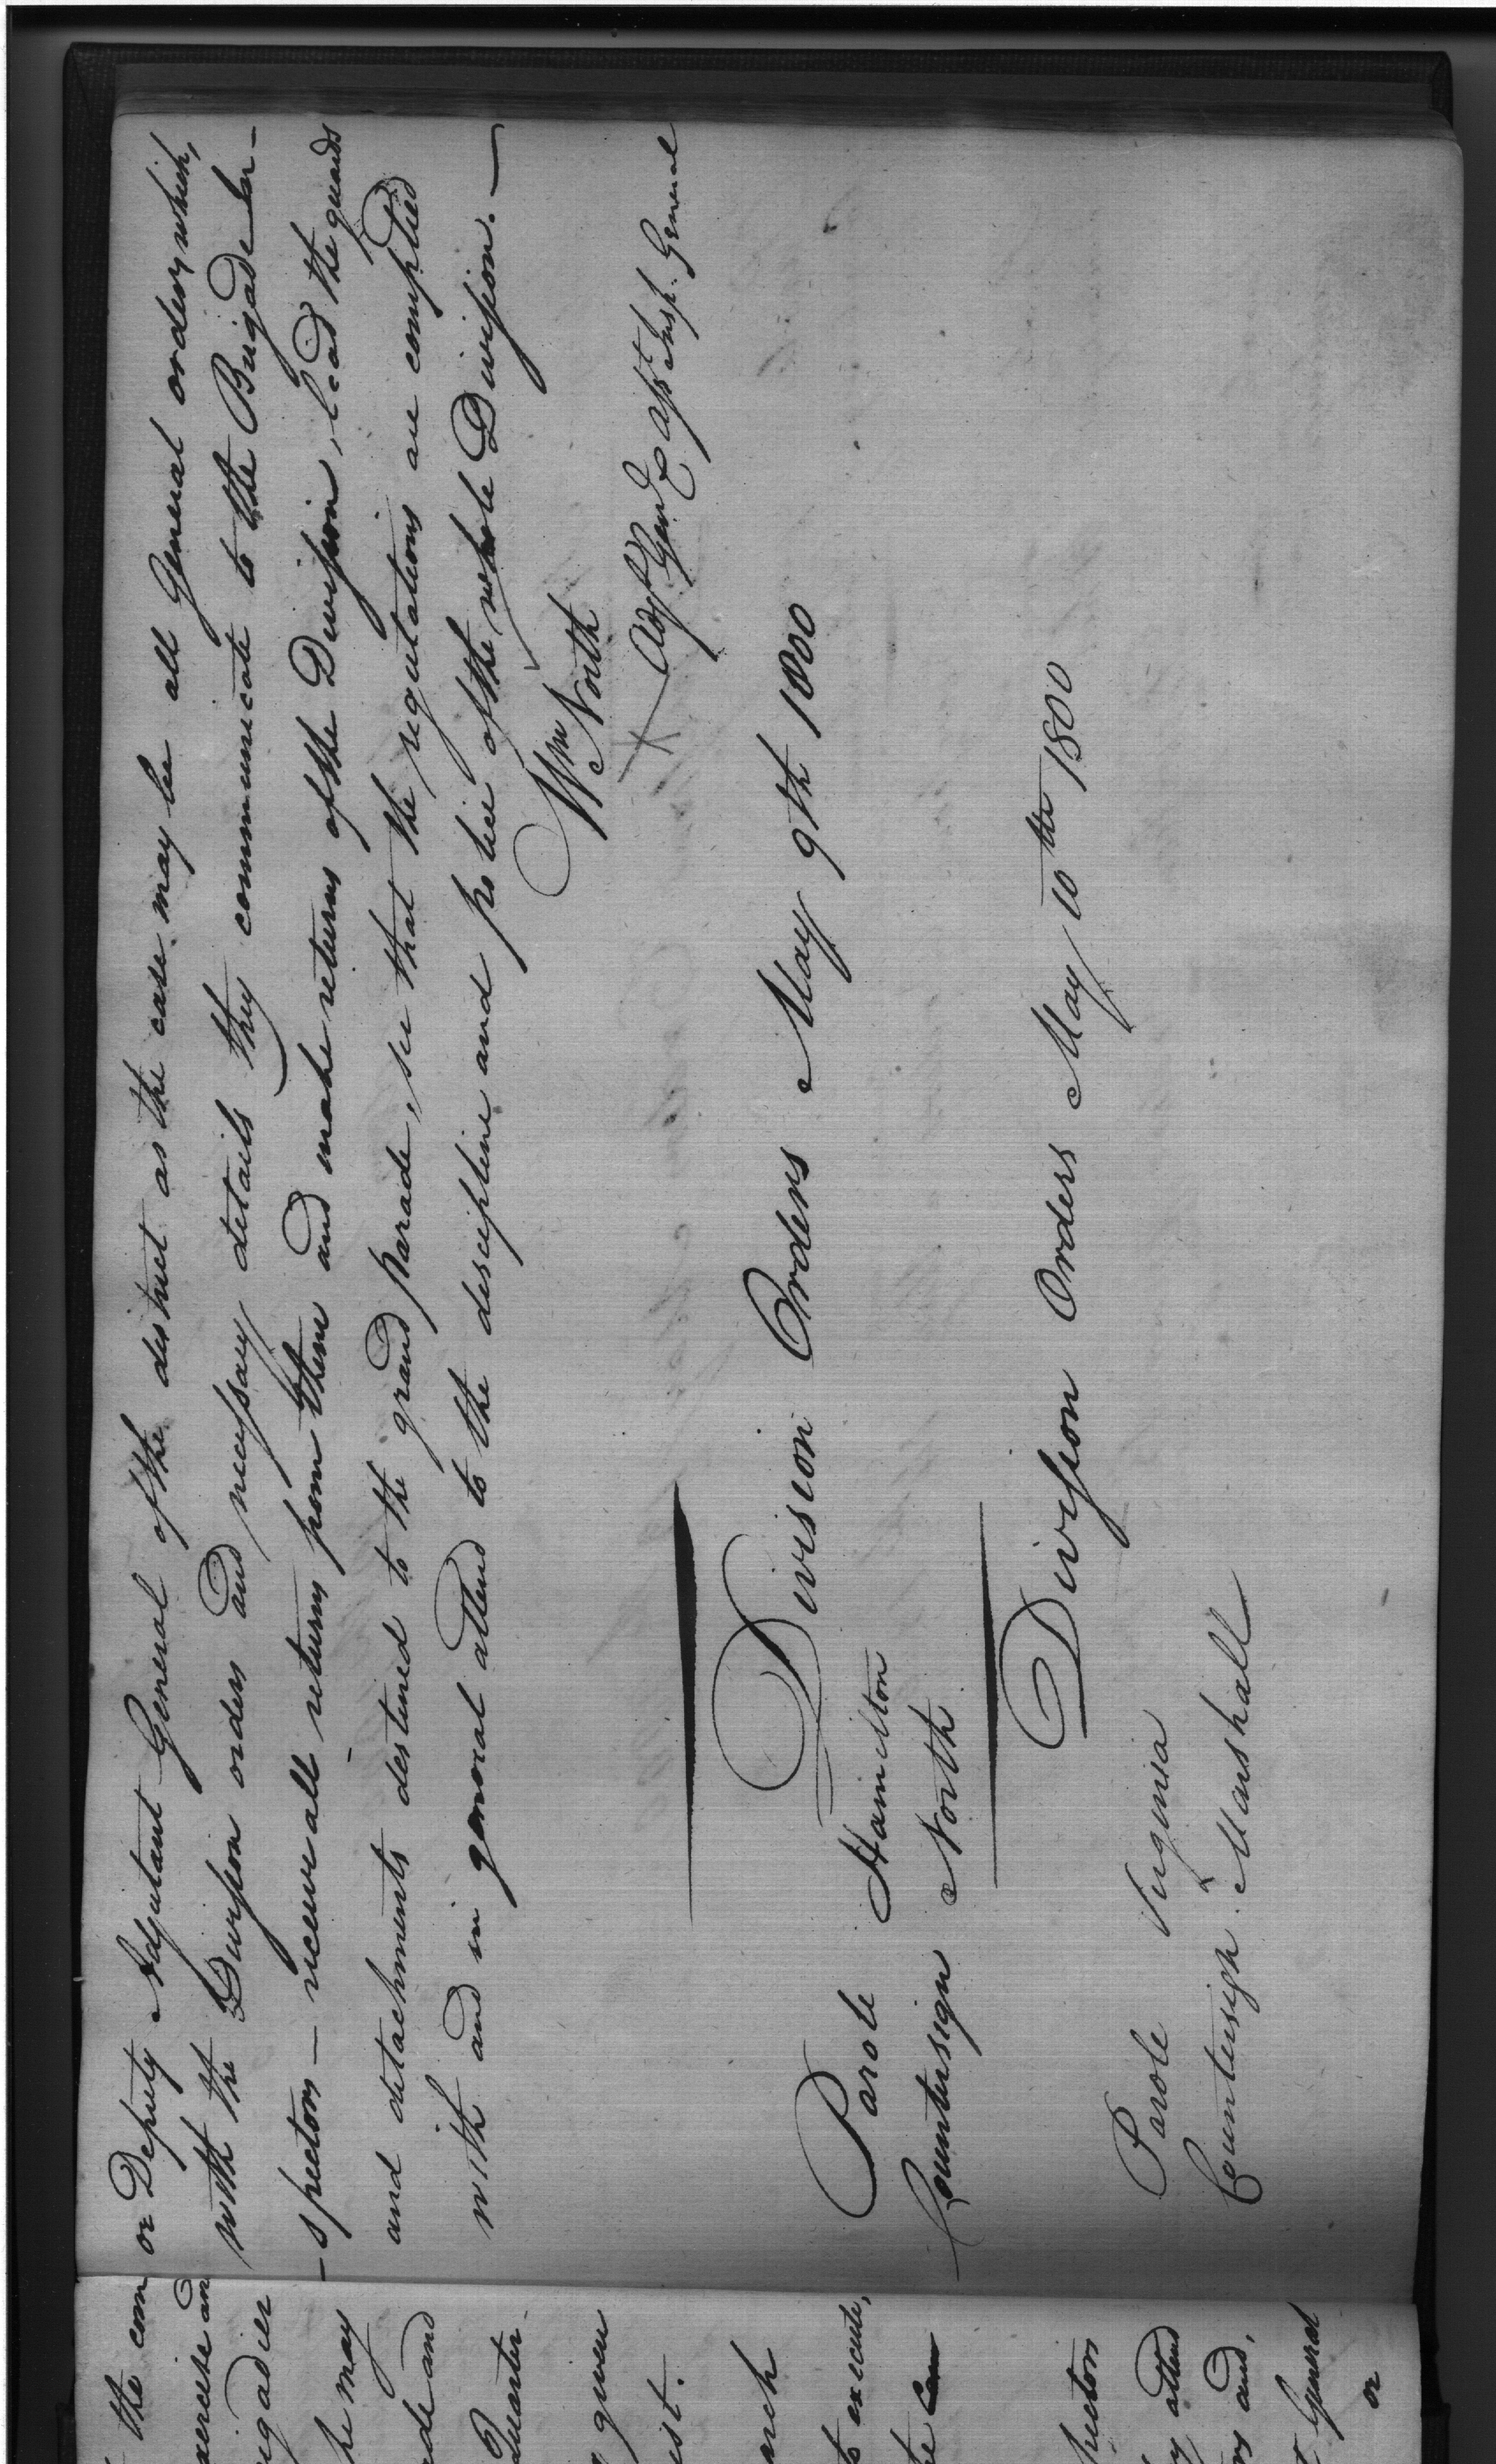 or Deputy Adjutant General of the district as the case may be all General orders, which,
with the Division orders and necessary details they communicate to the Brigade In-
-spectors — receive all returns from them and make returns of the Division, lead the guards
and detachments destined to the grand parade, see that the regulations are complied
with and in general attend to the discipline and police of the whole Division. —
Wm North
Adjt Genl & Asst Insp. General
Division Orders May 9th 1800
Parole Hamilton
Countersign North
Division Orders May 10th 1800
Parole Virginia
Countersign Marshall
the com
exercise an
he may
and
Quarter-
given
execute,
attend
and,
General
or